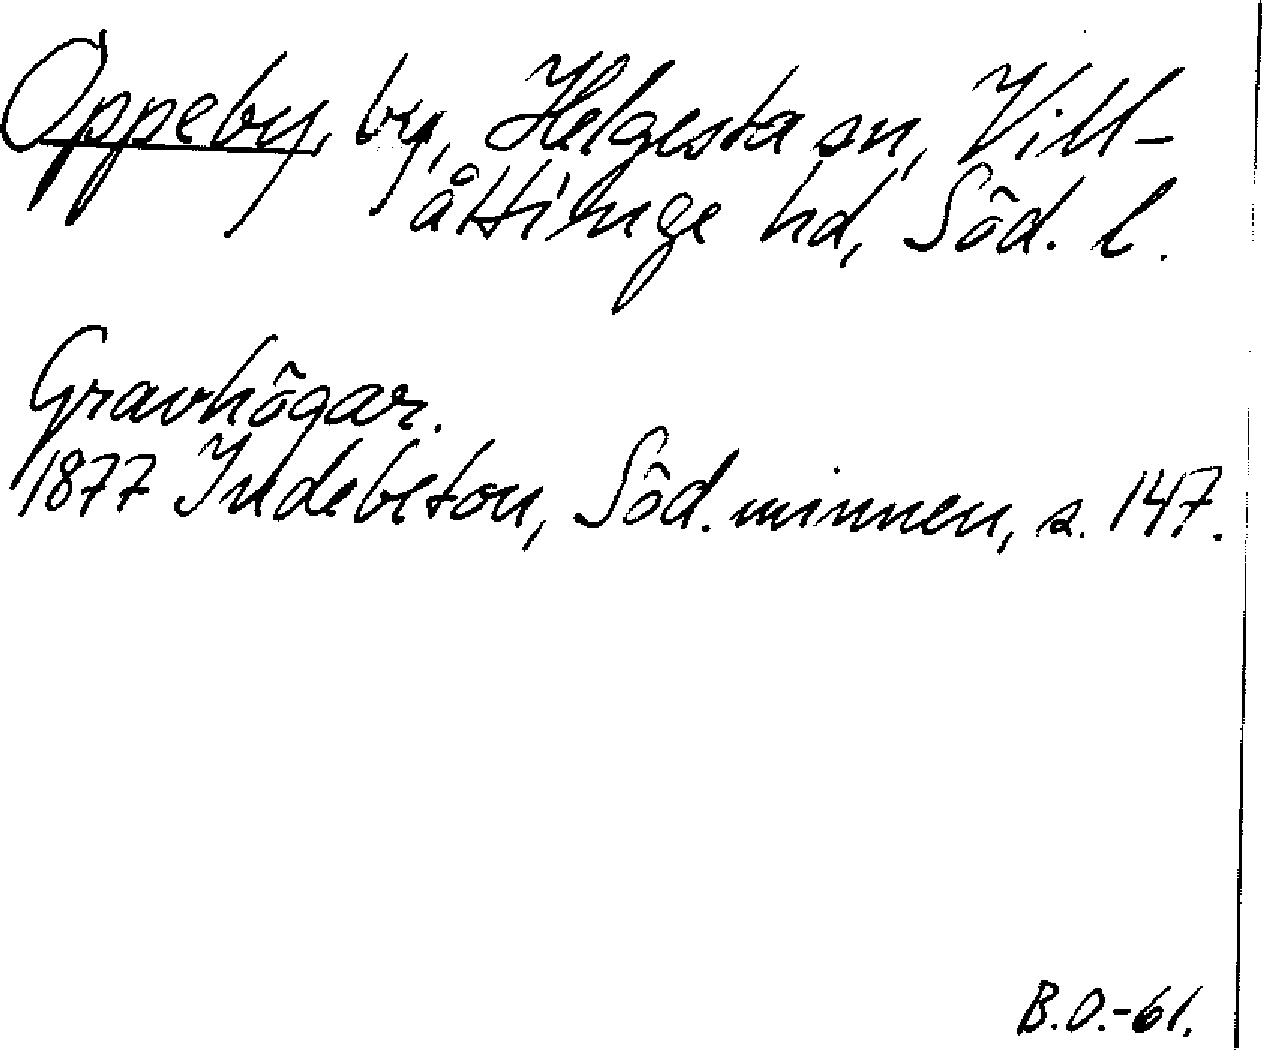 Oppeby, by, Helgesta sn, Vill-
åttinge hd, Söd. l.
Gravhögar.
1877 Indebetou, Söd. minnen, s. 147.
B.O.-61.